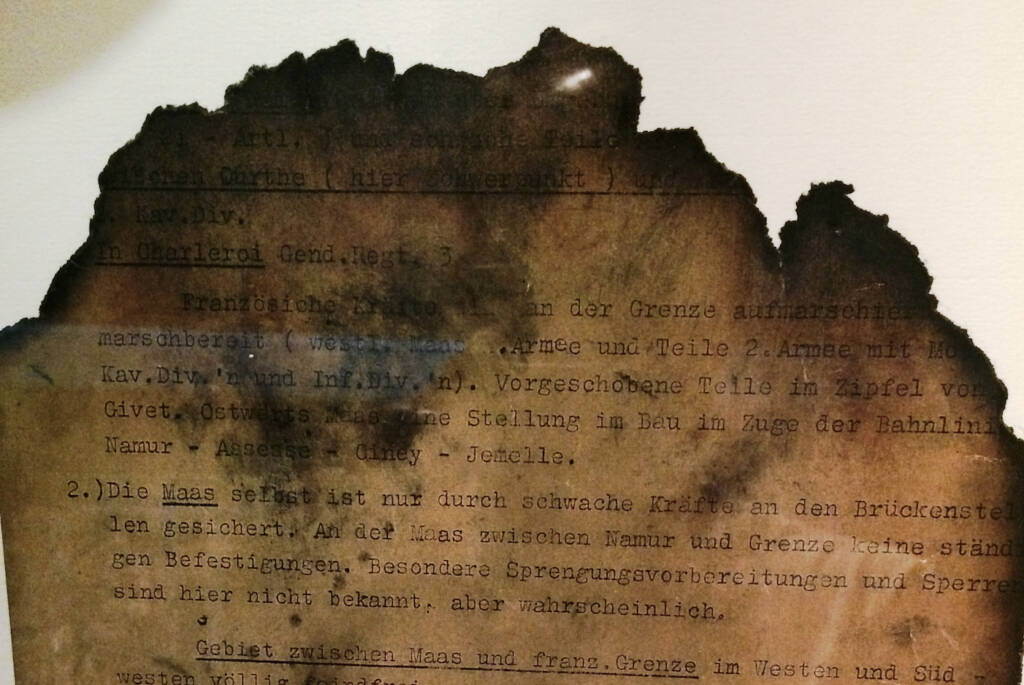 - Artl. Teile
Ourthe ( hier Schwerpunkt ) und
. Kav.Div.
In Charleroi Gend.Regt. 3
Französiche Kräfte an der Grenze aufmarschier
marschbereit ( westl. Maas .Armee und Teile 2.Armee mit Mo
Kav.Div.'n und Inf.Div.'n). Vorgeschobene Teile im Zipfel von
Givet. Ostwärts Maas eine Stellung im Bau im Zuge der Bahnlini
Namur - Assesse - Ciney - Jemelle.
2.)Die Maas selbst ist nur durch schwache Kräfte an den Brückenstel
len gesichert. An der Maas zwischen Namur und Grenze keine ständ
gen Befestigungen. Besondere Sprengungsvorbereitungen und Sperren
sind hier nicht bekannt, aber wahrscheinlich.
Gebiet zwischen Maas und franz.Grenze im Westen und Süd -
westen völlig feindfrei